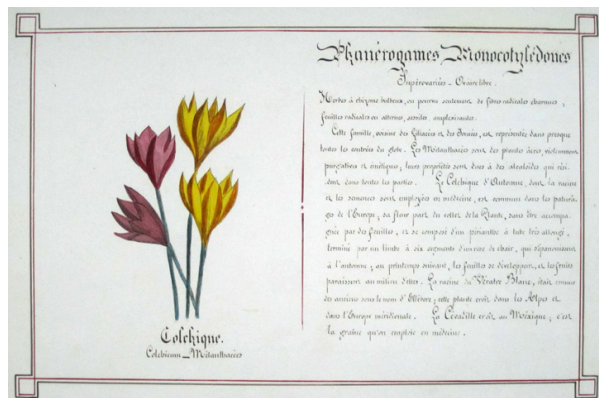 Colchique.
Colchicum _ Mélanthacées
Phanérogames Monocotylédones
Supérovariées _ Ovaire libre.
Herbes à rhizome bulbeux, ou pourvu souvent de fibres radicales charnues;
feuilles radicales ou alternes, sessiles, amplexicaules.
Cette famille, voisine des Liliacées et des Joncées, est représentée dans presque
toutes les contrées du globe. Les Mélanthacées sont des plantes âcres, violemment
purgatives et émétiques; leurs propriétés sont dues à des alcaloïdes qui rési-
dent dans toutes les parties. Le Colchique d'Automne, dont la racine
et les semences sont employées en médecine, est commun dans les pâtura-
ges de l'Europe; sa fleur part du collet de la plante, sans être accompa-
gnée par des feuilles, et se compose d'un périanthe à tube très allongé,
terminé par un limbe à six segments d'un rose de chair, qui s'épanouissent
à l'automne; au printemps suivant, les feuilles se développent, et les fruits
paraissent au milieu d'elles. La racine du Vératre Blanc, était connue
des anciens sous le nom d'Ellébore; cette plante croît dans les Alpes et
dans l'Europe méridionale. La Cévadille croît au Mexique; c'est
la graine qu'on emploie en médecine.